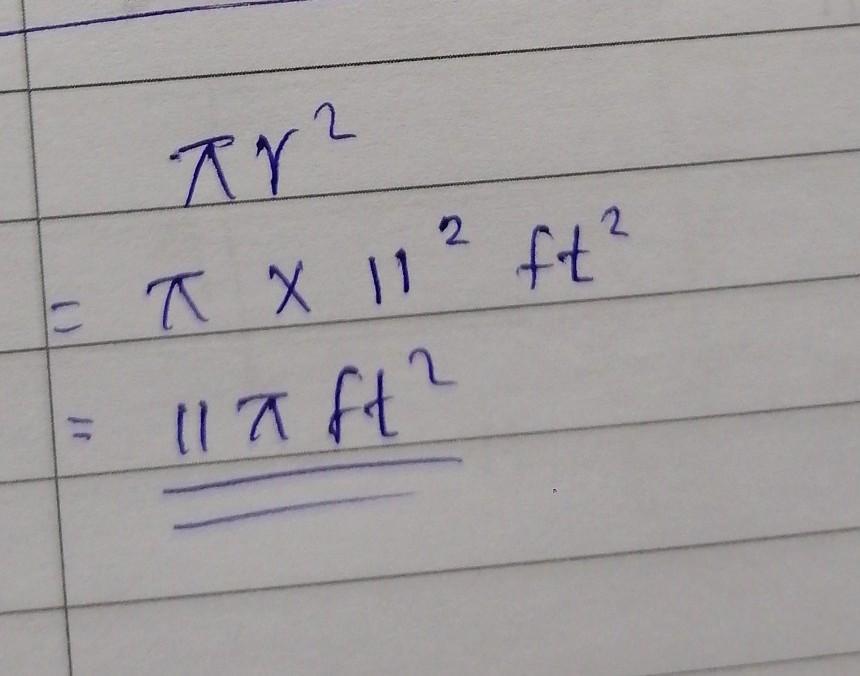 πr²
= π × 11² ft²
= 11π ft²